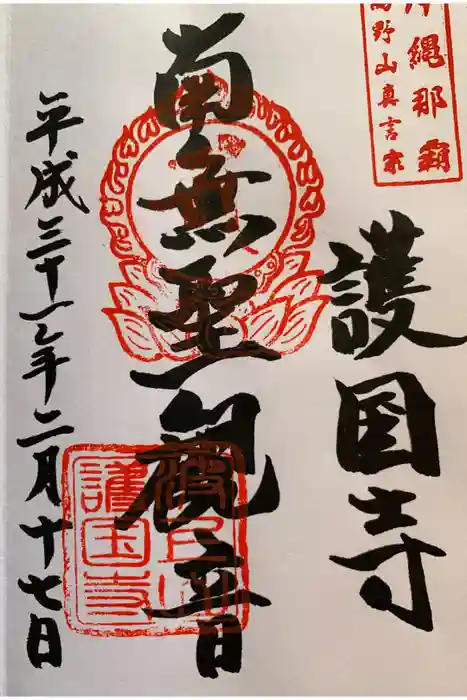 沖縄那覇
高野山真言宗
護国寺
南無聖観音
波上山
護国寺
平成三十一年二月十七日